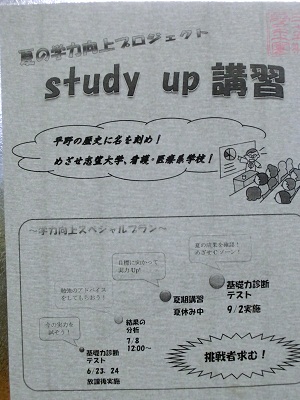 夏の学力向上プロジェクト
study up 講習
平野の歴史に名を刻め!
めざせ志望大学、看護・医療系学校!
~学力向上スペシャルプラン~
今の実力を
試そう!
基礎力診断
テスト
6/23、24
放課後実施
勉強のアドバイス
をしてもらおう!
結果の
分析
7/8
12:00~
目標に向かって
実力Up!
夏期講習
夏休み中
夏の成果を確認!
基礎力診断
テスト
9/2実施
挑戦者求む!